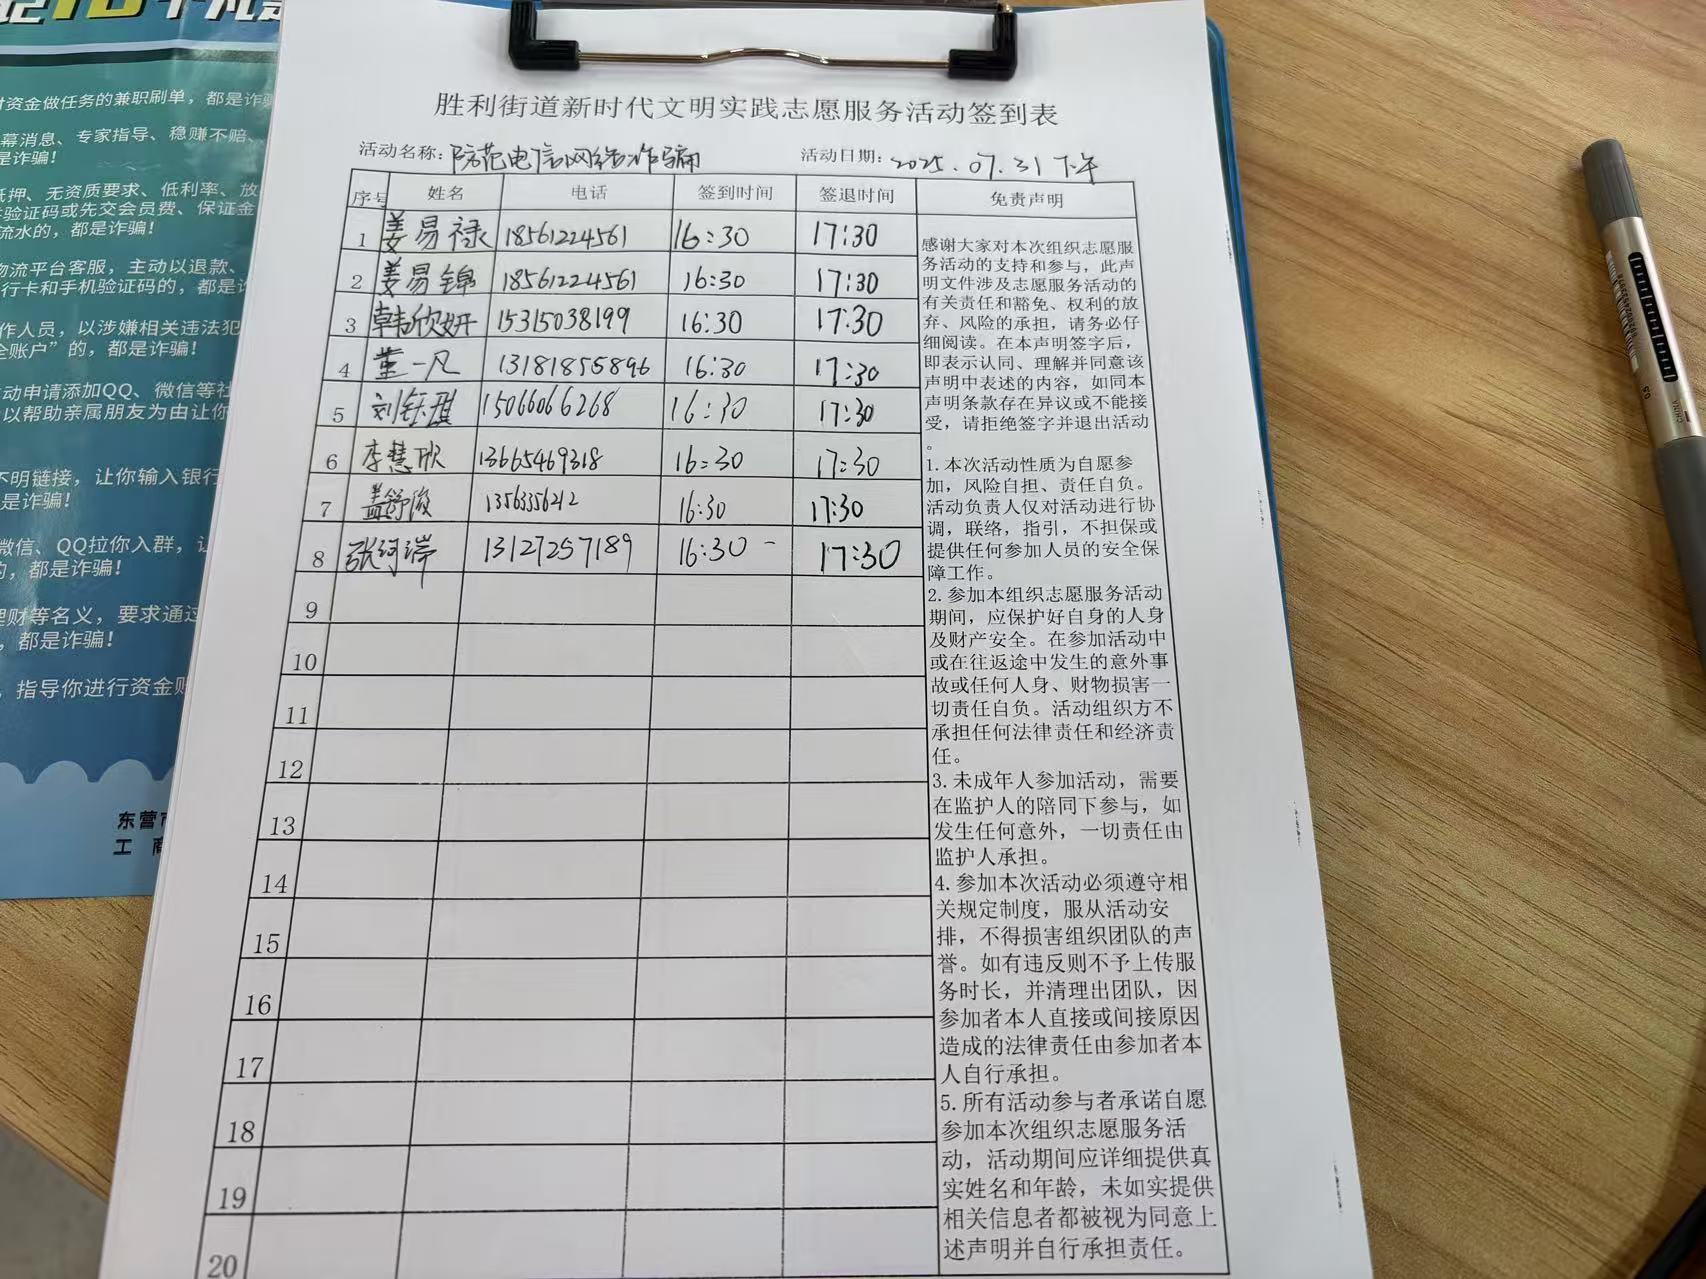 对资金做任务的兼职刷单，都是诈骗
幕消息、专家指导、稳赚不赔、
是诈骗！
抵押、无资质要求、低利率、放
验证码或先交会员费、保证金
流水的，都是诈骗！
物流平台客服，主动以退款、
行卡和手机验证码的，都是诈
作人员，以涉嫌相关违法犯
全账户”的，都是诈骗！
动申请添加QQ、微信等社
以帮助亲属朋友为由让你
不明链接，让你输入银行
是诈骗！
微信、QQ拉你入群，让
的，都是诈骗！
理财等名义，要求通过
，都是诈骗！
，指导你进行资金账
东营市
工商
胜利街道新时代文明实践志愿服务活动签到表
活动名称：防范电信网络诈骗 活动日期：2025.07.31下午
序号 姓名 电话 签到时间 签退时间 免责声明
1 姜易禄 18561224561 16:30 17:30
2 姜易锦 18561224561 16:30 17:30
3 韩欣妍 15315038199 16:30 17:30
4 董一凡 13181855896 16:30 17:30
5 刘钰琪 15066066268 16:30 17:30
6 李慧欣 13665469318 16:30 17:30
7 盖舒俊 13563356212 16:30 17:30
8 张 13127257189 16:30 - 17:30
9
10
11
12
13
14
15
16
17
18
19
20
感谢大家对本次组织志愿服
务活动的支持和参与，此声
明文件涉及志愿服务活动的
有关责任和豁免、权利的放
弃、风险的承担，请务必仔
细阅读。在本声明签字后，
即表示认同、理解并同意该
声明中表述的内容，如同本
声明条款存在异议或不能接
受，请拒绝签字并退出活动
。
1.本次活动性质为自愿参
加，风险自担、责任自负。
活动负责人仅对活动进行协
调，联络，指引，不担保或
提供任何参加人员的安全保
障工作。
2.参加本组织志愿服务活动
期间，应保护好自身的人身
及财产安全。在参加活动中
或在往返途中发生的意外事
故或任何人身、财物损害一
切责任自负。活动组织方不
承担任何法律责任和经济责
任。
3.未成年人参加活动，需要
在监护人的陪同下参与，如
发生任何意外，一切责任由
监护人承担。
4.参加本次活动必须遵守相
关规定制度，服从活动安
排，不得损害组织团队的声
誉。如有违反则不予上传服
务时长，并清理出团队，因
参加者本人直接或间接原因
造成的法律责任由参加者本
人自行承担。
5.所有活动参与者承诺自愿
参加本次组织志愿服务活
动，活动期间应详细提供真
实姓名和年龄，未如实提供
相关信息者都被视为同意上
述声明并自行承担责任。